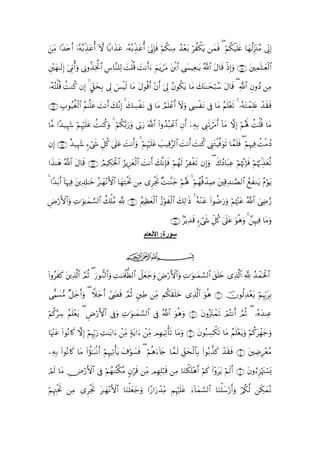 مِّنَ ٱلْعَٰلَمِينَ ﴿١١٥﴾ وَإِذْ قَالَ ٱللَّهُ يَٰعِيسَى ٱبْنَ مَرْيَمَ ءَأَنتَ قُلْتَ لِلنَّاسِ ٱتَّخِذُونِى وَأُمِّىَ إِلَٰهَيْنِ
مِن دُونِ ٱللَّهِ ۖ قَالَ سُبْحَٰنَكَ مَا يَكُونُ لِىٓ أَنْ أَقُولَ مَا لَيْسَ لِى بِحَقٍّ ۚ إِن كُنتُ قُلْتُهُۥ
فَقَدْ عَلِمْتَهُۥ ۚ تَعْلَمُ مَا فِى نَفْسِى وَلَآ أَعْلَمُ مَا فِى نَفْسِكَ ۚ إِنَّكَ أَنتَ عَلَّٰمُ ٱلْغُيُوبِ ﴿١١٦﴾
مَا قُلْتُ لَهُمْ إِلَّا مَآ أَمَرْتَنِى بِهِۦٓ أَنِ ٱعْبُدُوا۟ ٱللَّهَ رَبِّى وَرَبَّكُمْ ۚ وَكُنتُ عَلَيْهِمْ شَهِيدًا مَّا
دُمْتُ فِيهِمْ ۖ فَلَمَّا تَوَفَّيْتَنِى كُنتَ أَنتَ ٱلرَّقِيبَ عَلَيْهِمْ ۚ وَأَنتَ عَلَىٰ كُلِّ شَىْءٍ شَهِيدٌ ﴿١١٧﴾ إِن
تُعَذِّبْهُمْ فَإِنَّهُمْ عِبَادُكَ ۖ وَإِن تَغْفِرْ لَهُمْ فَإِنَّكَ أَنتَ ٱلْعَزِيزُ ٱلْحَكِيمُ ﴿١١٨﴾ قَالَ ٱللَّهُ هَٰذَا
يَوْمُ يَنفَعُ ٱلصَّٰدِقِينَ صِدْقُهُمْ ۚ لَهُمْ جَنَّٰتٌ تَجْرِى مِن تَحْتِهَا ٱلْأَنْهَٰرُ خَٰلِدِينَ فِيهَآ أَبَدًا ۚ
رَّضِىَ ٱللَّهُ عَنْهُمْ وَرَضُوا۟ عَنْهُ ۚ ذَٰلِكَ ٱلْفَوْزُ ٱلْعَظِيمُ ﴿١١٩﴾ لِلَّهِ مُلْكُ ٱلسَّمَٰوَٰتِ وَٱلْأَرْضِ
وَمَا فِيهِنَّ ۚ وَهُوَ عَلَىٰ كُلِّ شَىْءٍ قَدِيرٌۢ ﴿١٢٠﴾
سورة: الأنعام
بِسْمِ ٱللَّهِ ٱلرَّحْمَٰنِ ٱلرَّحِيمِ
ٱلْحَمْدُ لِلَّهِ ٱلَّذِى خَلَقَ ٱلسَّمَٰوَٰتِ وَٱلْأَرْضَ وَجَعَلَ ٱلظُّلُمَٰتِ وَٱلنُّورَ ۖ ثُمَّ ٱلَّذِينَ كَفَرُوا۟
بِرَبِّهِمْ يَعْدِلُونَ ﴿١﴾ هُوَ ٱلَّذِى خَلَقَكُم مِّن طِينٍ ثُمَّ قَضَىٰٓ أَجَلًا ۖ وَأَجَلٌ مُّسَمًّى
عِندَهُۥ ۖ ثُمَّ أَنتُمْ تَمْتَرُونَ ﴿٢﴾ وَهُوَ ٱللَّهُ فِى ٱلسَّمَٰوَٰتِ وَفِى ٱلْأَرْضِ ۖ يَعْلَمُ سِرَّكُمْ
وَجَهْرَكُمْ وَيَعْلَمُ مَا تَكْسِبُونَ ﴿٣﴾ وَمَا تَأْتِيهِم مِّنْ ءَايَةٍ مِّنْ ءَايَٰتِ رَبِّهِمْ إِلَّا كَانُوا۟ عَنْهَا
مُعْرِضِينَ ﴿٤﴾ فَقَدْ كَذَّبُوا۟ بِٱلْحَقِّ لَمَّا جَآءَهُمْ ۖ فَسَوْفَ يَأْتِيهِمْ أَنۢبَٰٓؤُا۟ مَا كَانُوا۟ بِهِۦ
يَسْتَهْزِءُونَ ﴿٥﴾ أَلَمْ يَرَوْا۟ كَمْ أَهْلَكْنَا مِن قَبْلِهِم مِّن قَرْنٍ مَّكَّنَّٰهُمْ فِى ٱلْأَرْضِ مَا لَمْ
نُمَكِّن لَّكُمْ وَأَرْسَلْنَا ٱلسَّمَآءَ عَلَيْهِم مِّدْرَارًا وَجَعَلْنَا ٱلْأَنْهَٰرَ تَجْرِى مِن تَحْتِهِمْ